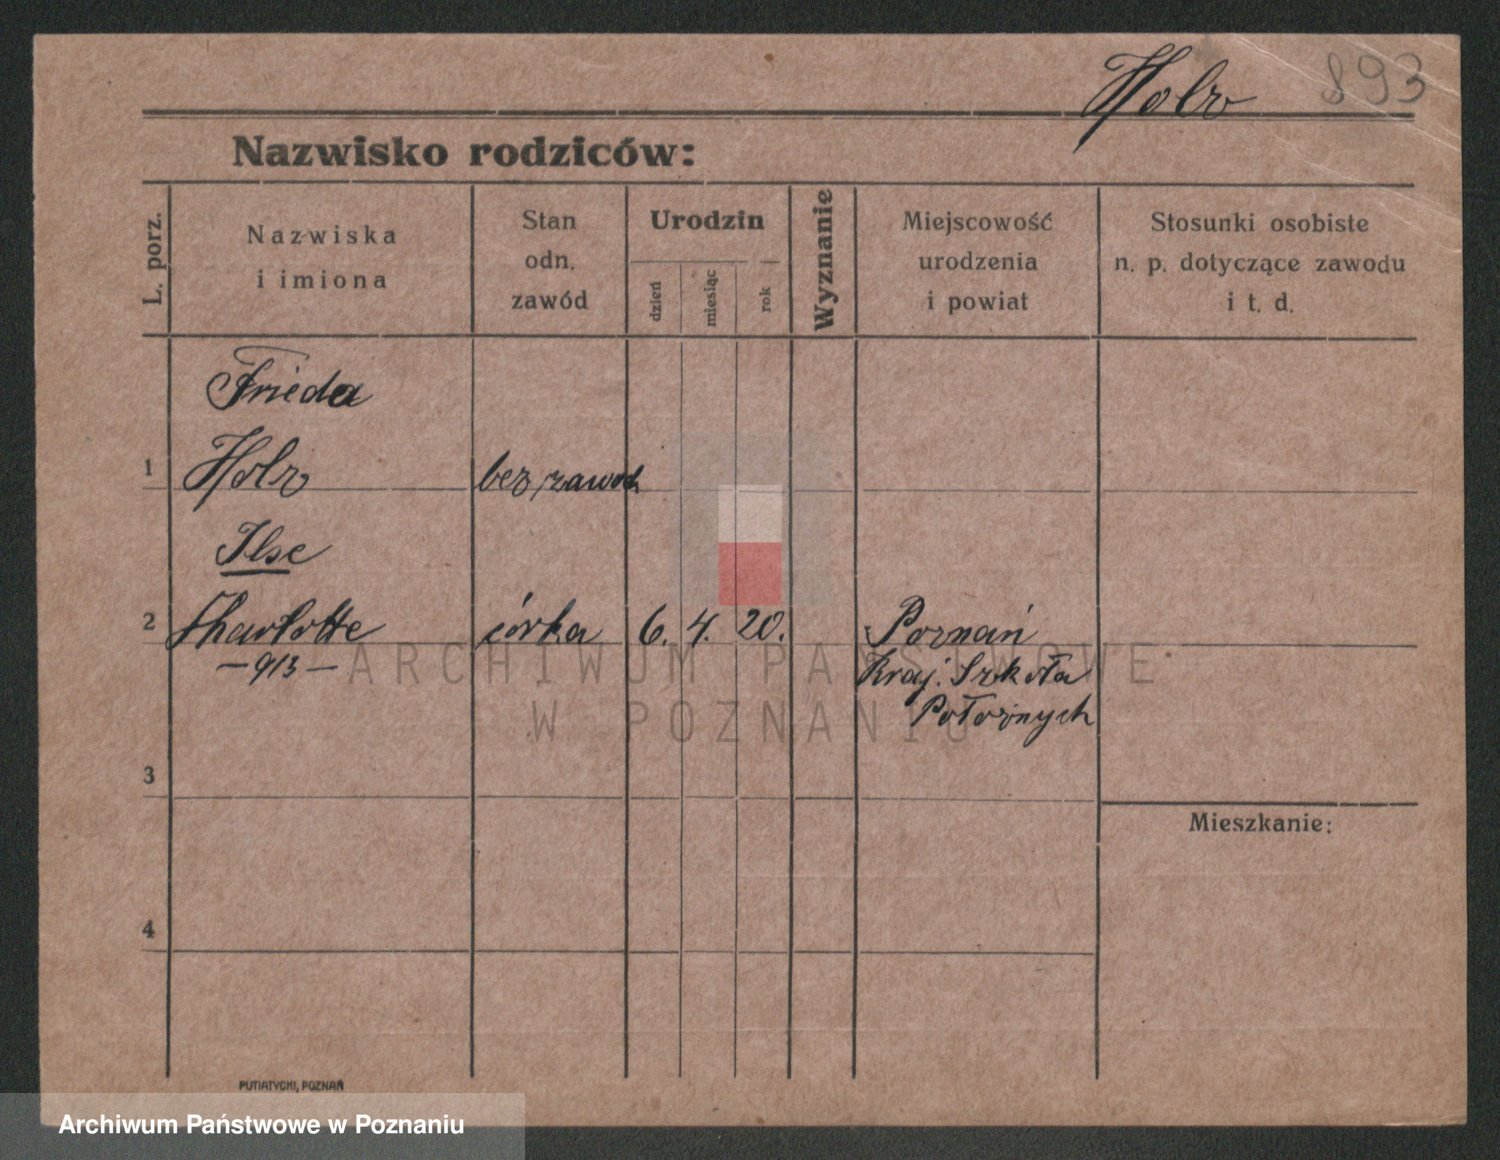 Holz 893
Nazwisko rodziców:
L. porz.
Nazwiska
i imiona
Stan
odn.
zawód
Urodzin
dzień
miesiąc
rok
Wyznanie
Miejscowość
urodzenia
i powiat
Stosunki osobiste
n. p. dotyczące zawodu
i t. d.
Frieda
1 Holz bez zawod.
Ilse
2 Charlotte córka 6. 4. 20. Poznań
— 913 — Kraj. Szkoła
Położnych
ARCHIWUM PAŃSTWOWE
W POZNANIU
3
Mieszkanie:
4
PUTIATYCKI, POZNAŃ
Archiwum Państwowe w Poznaniu